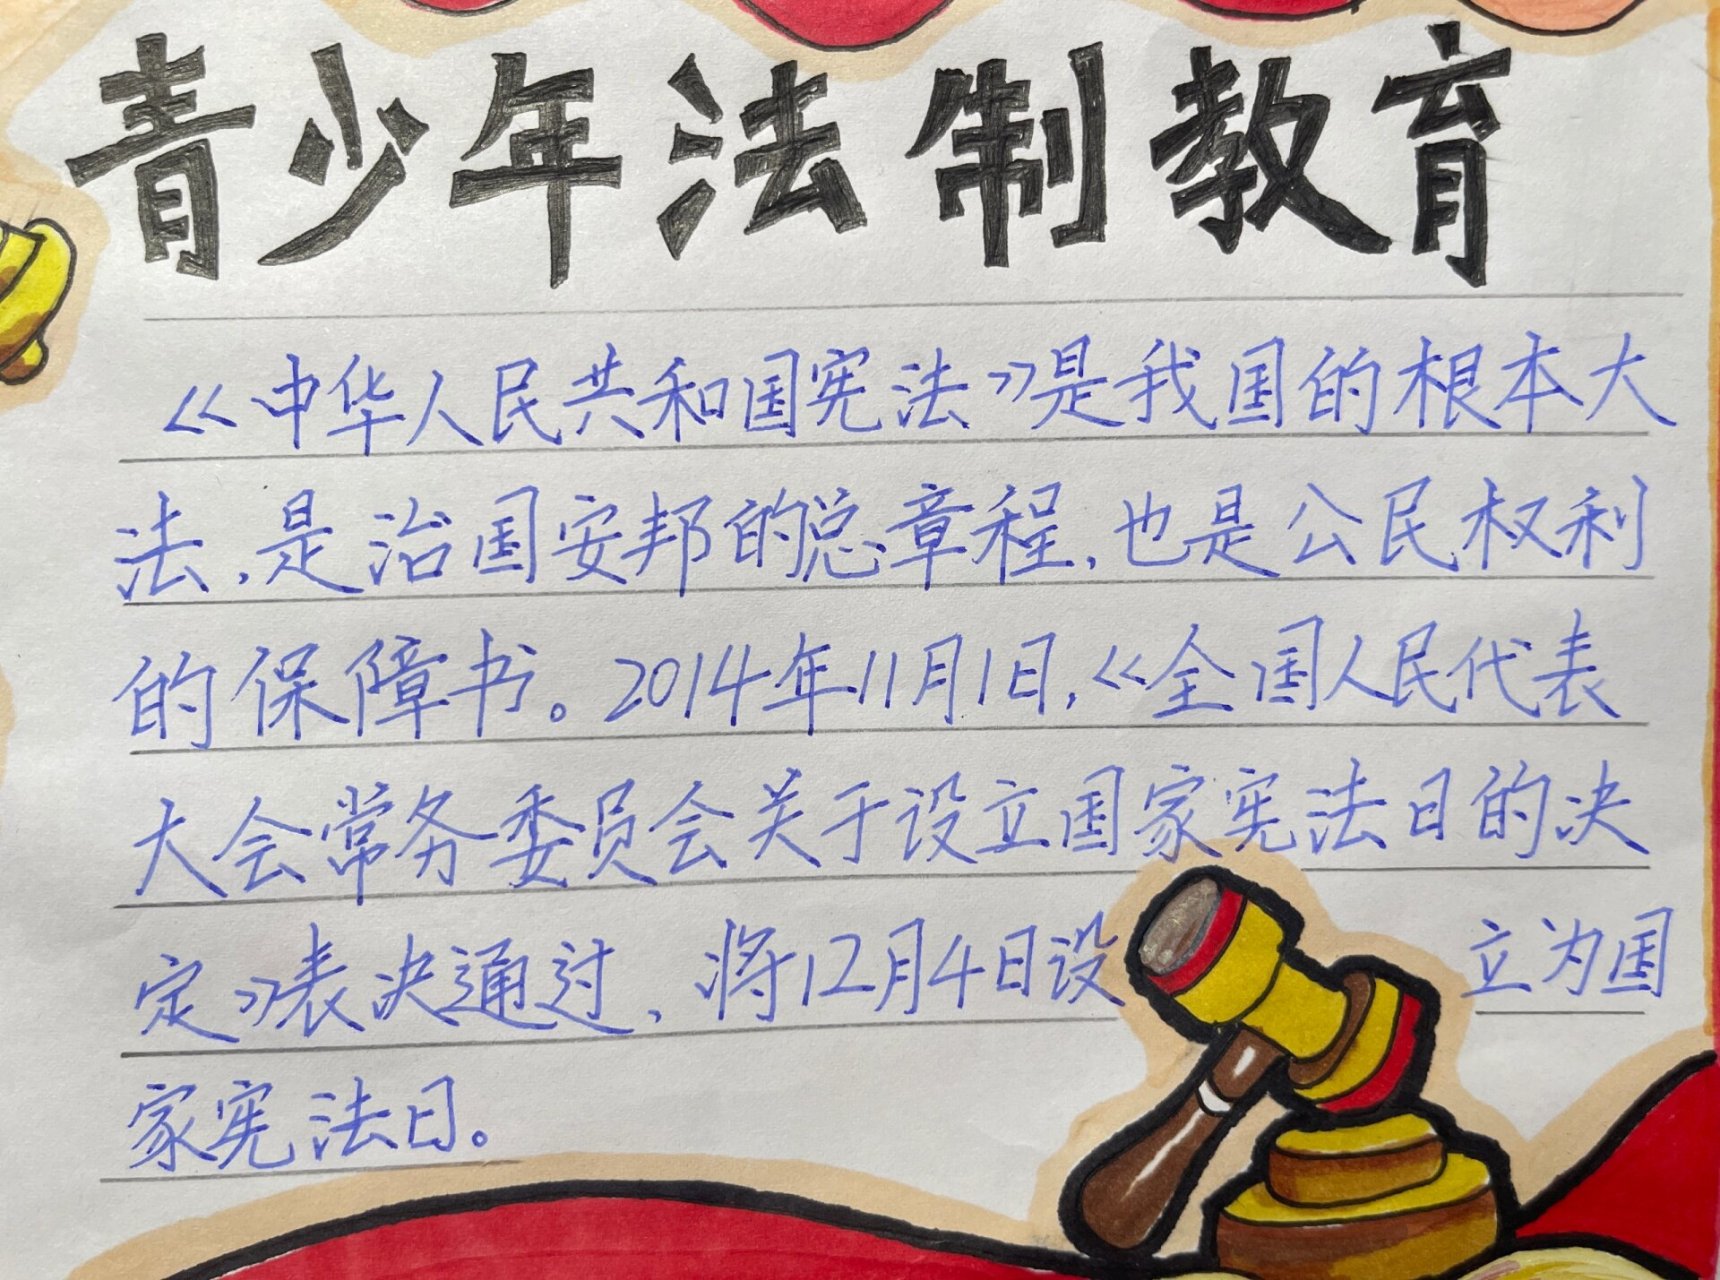 青少年法制教育
《中华人民共和国宪法》是我国的根本大
法,是治国安邦的总章程,也是公民权利
的保障书。2014年11月1日,《全国人民代表
大会常务委员会关于设立国家宪法日的决
定》表决通过,将12月4日设立为国
家宪法日。